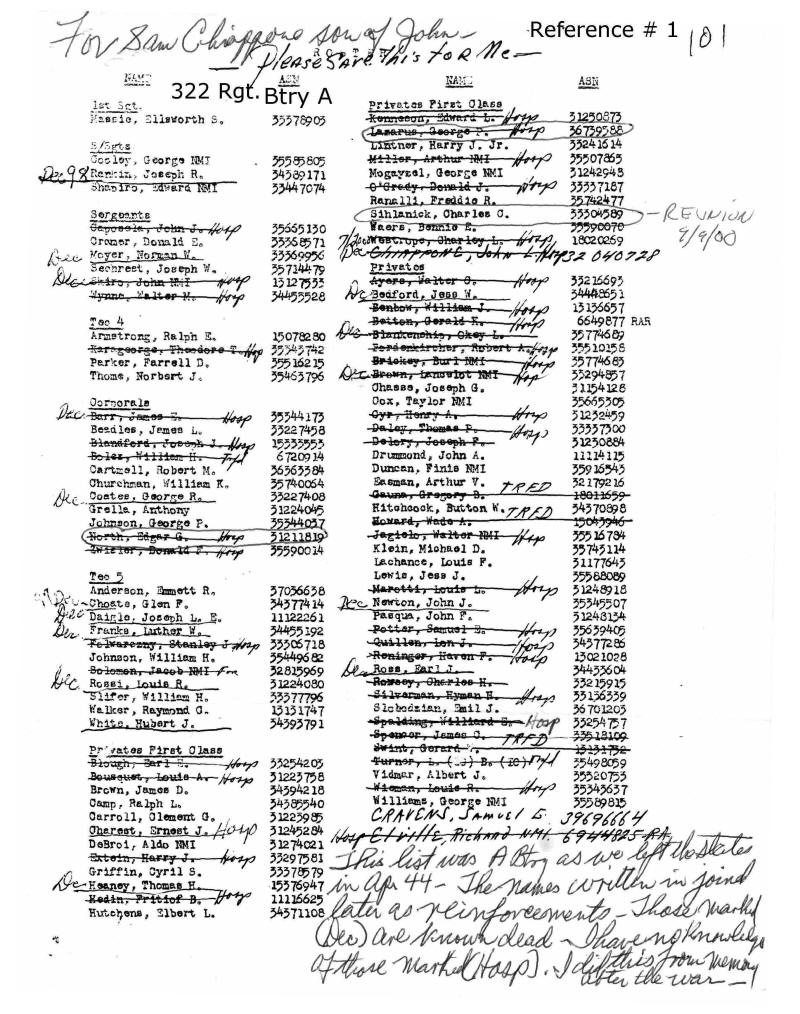 For Sam Chiappone son of John—
Reference # 1
101
ROSTER
Please Save This For Me—
NAME ASN
322 Rgt. Btry A
1st Sgt.
Massie, Ellsworth S. 35378903
S/Sgts
Cooley, George NMI 35585805
Dec 98 Rankin, Joseph R. 34389171
Shapiro, Edward NMI 33447074
Sergeants
Caposela, John J. Hosp 35665130
Cromer, Donald E. 33368571
Dec Moyer, Norman W. 33369956
Sechrest, Joseph W. 35714479
Dec Skiro, John NMI Hosp 13127533
Wynne, Walter M. Hosp 34455528
Tec 4
Armstrong, Ralph E. 15078280
Karageorge, Theodore T. Hosp 35343742
Parker, Farrell D. 35516215
Thoms, Norbert J. 35463796
Corporals
Dec Barr, James E. Hosp 35344173
Beadles, James L. 33227458
Blandford, Joseph J. Hosp 15333553
Boles, William H. Trfd 6720914
Cartzell, Robert M. 36363384
Churchman, William K. 35740064
Dec Coates, George R. 33227408
Grella, Anthony 31224045
Johnson, George P. 35344037
North, Edgar G. Hosp 31211819
Zwisler, Donald F. Hosp 35590014
Tec 5
Anderson, Emmett R. 37036638
Dec Choate, Glen F. 34377414
Dec Daigle, Joseph L. E. 11122261
Dec Franks, Luther W. 34455192
Felwarczny, Stanley J Hosp 33306718
Johnson, William H. 35449682
Solomon, Jacob NMI 32815969
Dec Rossi, Louis R. 31224080
Slifer, William H. 33377796
Walker, Raymond C. 13131747
White, Hubert J. 34393791
Privates First Class
Blough, Earl E. Hosp 33254203
Bousquet, Louis A. Hosp 31223758
Brown, James D. 34394218
Camp, Ralph L. 34385540
Carroll, Clement G. 31223985
Charest, Ernest J. Hosp 31245284
DeBroi, Aldo NMI 31274021
Extein, Harry J. Hosp 33297581
Griffin, Cyril S. 33378579
Dec Heaney, Thomas H. 15376947
Hedin, Fritiof B. Hosp 11116625
Hutchens, Elbert L. 34371108
NAME ASN
Privates First Class
Kenneson, Edward L. Hosp 31250873
Lazarus, George P. Hosp 36739588
Lintner, Harry J. Jr. 33241614
Miller, Arthur NMI Hosp 35507865
Mogayzel, George NMI 31242948
O'Grady, Donald J. Hosp 33337187
Ranalli, Freddie R. 35742477
Sihlanick, Charles C. 33304589 — REUNION
9/9/00
Waers, Bennie E. 35590070
Westrope, Charley L. Hosp 18020269
Dec CHIAPPONE, John L Hosp 32 040728
Privates
Ayers, Walter C. Hosp 33216693
Dc Bedford, Jess W. 34448651
Benbow, William J. Hosp 13136657
Betten, Gerald K. Hosp 6649877 RAR
Dec Blankenship, Okey L. 35774689
Bordenkircher, Robert A. Hosp 35510158
Brickey, Burl NMI Hosp 35774683
Dec Brown, Lancelot NMI Hosp 33294837
Chasse, Joseph G. 31154128
Cox, Taylor NMI 35665305
Cyr, Henry A. Hosp 31232459
Daley, Thomas P. Hosp 33337300
Delory, Joseph F. 31250884
Drummond, John A. 11114115
Duncan, Finis NMI 35916543
Easman, Arthur V. TRFD 32179216
Gauna, Gregory B. 18011659
Hitchcock, Button W. TRFD 34370898
Howard, Wade A. 15043946
Jagielo, Walter NMI Hosp 33516784
Klein, Michael D. 35745114
Lachance, Louis F. 31177643
Lewis, Jess J. 35588089
Marotti, Louis L. Hosp 31248918
Dec Newton, John J. 35345507
Pasqua, John F. 31248134
Potter, Samuel E. Hosp 35639405
Quillen, Lon J. Hosp 34377286
Reninger, Haven F. Hosp 13021028
Dec Ross, Earl J. 34433604
Rowsey, Charles H. 33215915
Silverman, Hyman H. Hosp 33136339
Slobodzian, Emil J. 36701203
Spalding, Williard E. Hosp 33254757
Spencer, James C. TRFD 33518109
Swint, Gerard 13131752
Turner, L. B. (IO) Trfd 35498059
Vidmar, Albert J. 35520753
Wieman, Louis R. Hosp 35343637
Williams, George NMI 35589815
CRAVENS, SAMUEL E. 39696664
Hosp Elville, Richard NMI 6944825 RA
This list was A Btry as we left the States
in Apr 44 - The names written in joined
later as reinforcements - Those marked
(Dec) are known dead - I have no knowledge
of those marked (Hosp). I did this from memory
after the war -